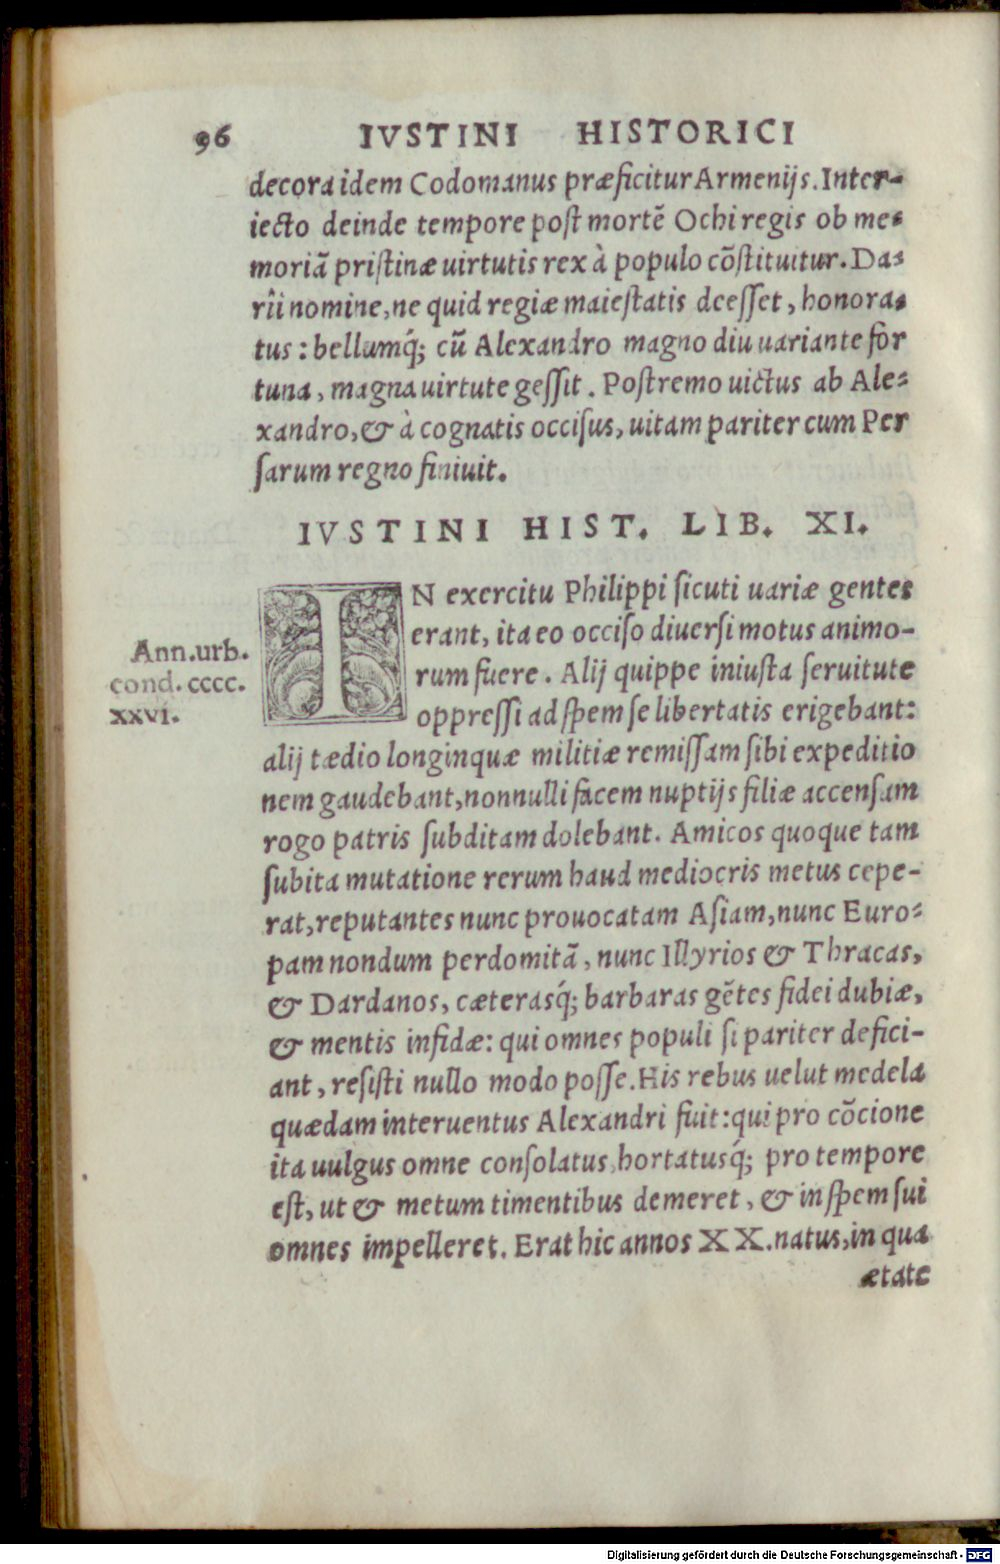 96 IVSTINI HISTORICI
decora idem Codomanus præficitur Armenijs. Inter-
iecto deinde tempore post mortē Ochi regis ob me-
moriā pristinæ uirtutis rex à populo cōstituitur. Da-
rii nomine, ne quid regiæ maiestatis deesset, honora-
tus: bellumq́; cū Alexandro magno diu uariante for
tuna, magna uirtute gessit. Postremo uictus ab Ale-
xandro, & à cognatis occisus, uitam pariter cum Per
sarum regno finiuit.
IVSTINI HIST. LIB. XI.
IN exercitu Philippi sicuti uariæ gentes
erant, ita eo occiso diuersi motus animo-
rum fuere. Alij quippe iniusta seruitute
oppressi ad spem se libertatis erigebant:
Ann.urb.
cond. cccc.
xxvi.
alij tædio longinquæ militiæ remissam sibi expeditio
nem gaudebant, nonnulli facem nuptijs filiæ accensam
rogo patris subditam dolebant. Amicos quoque tam
subita mutatione rerum haud mediocris metus cepe-
rat, reputantes nunc prouocatam Asiam, nunc Euro-
pam nondum perdomitā, nunc Illyrios & Thracas,
& Dardanos, cæterasq́; barbaras gētes fidei dubiæ,
& mentis infidæ: qui omnes populi si pariter defici-
ant, resisti nullo modo posse. His rebus uelut medela
quædam interuentus Alexandri fuit: qui pro cōcione
ita uulgus omne consolatus, hortatusq́; pro tempore
est, ut & metum timentibus demeret, & in spem sui
omnes impelleret. Erat hic annos XX. natus, in qua
ætate
Digitalisierung gefördert durch die Deutsche Forschungsgemeinschaft - DFG